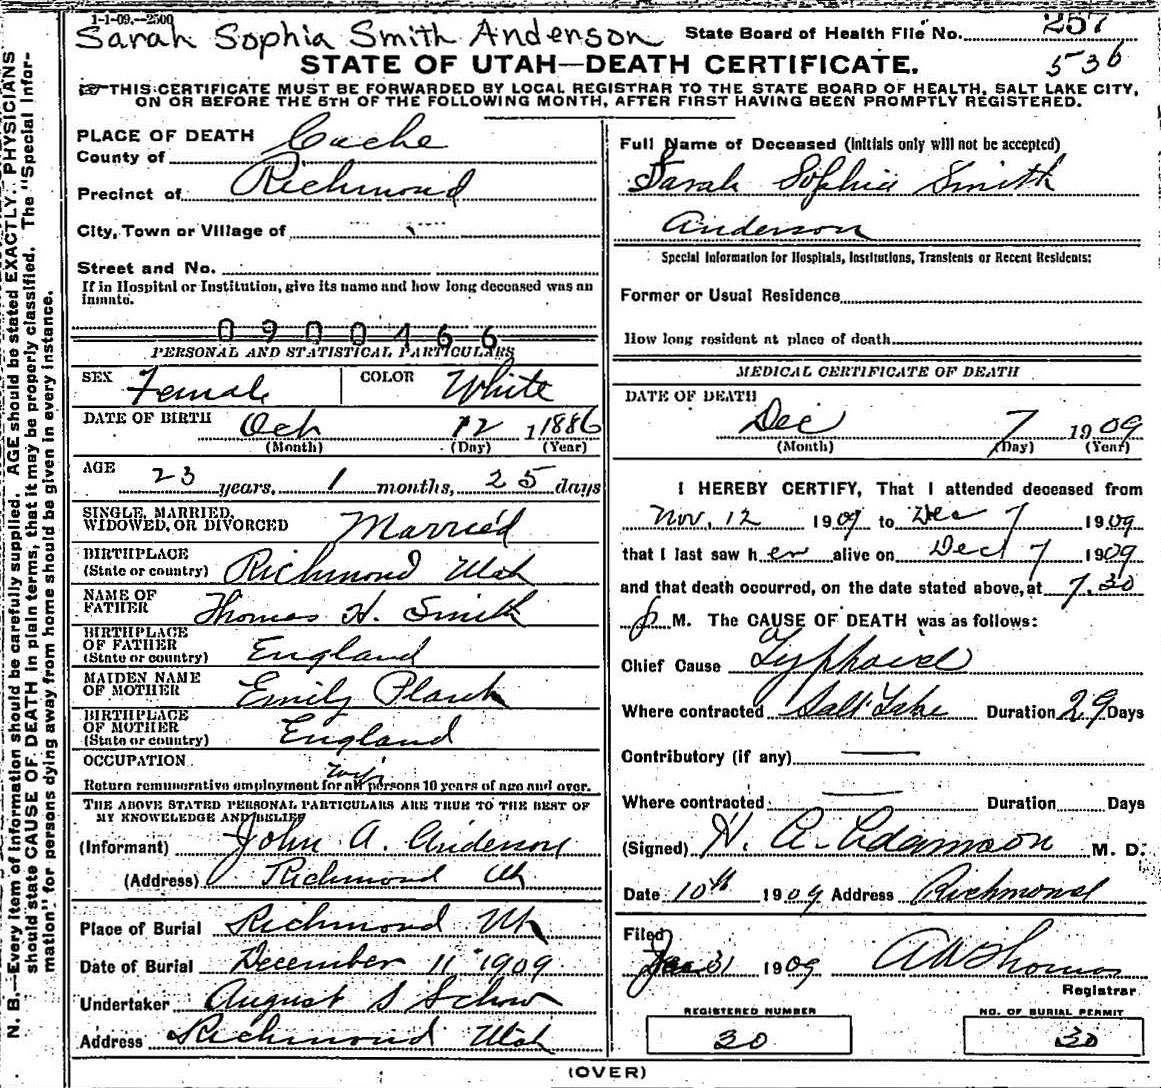 1-1-09.--2500
Sarah Sophia Smith Anderson
State Board of Health File No. 257
536
STATE OF UTAH—DEATH CERTIFICATE.
THIS CERTIFICATE MUST BE FORWARDED BY LOCAL REGISTRAR TO THE STATE BOARD OF HEALTH, SALT LAKE CITY,
ON OR BEFORE THE 5TH OF THE FOLLOWING MONTH, AFTER FIRST HAVING BEEN PROMPTLY REGISTERED.
N. B.—Every item of information should be carefully supplied. AGE should be stated EXACTLY. PHYSICIANS
should state CAUSE OF DEATH in plain terms, that it may be properly classified. The "Special Infor-
mation" for persons dying away from home should be given in every instance.
PLACE OF DEATH
County of Cache
Precinct of Richmond
City, Town or Village of
Street and No.
If in Hospital or Institution, give its name and how long deceased was an
inmate.
0900466
PERSONAL AND STATISTICAL PARTICULARS
SEX Female COLOR White
DATE OF BIRTH Oct 12 1886
(Month) (Day) (Year)
AGE
23 years, 1 months, 25 days
SINGLE, MARRIED,
WIDOWED, OR DIVORCED Married
BIRTHPLACE
(State or country) Richmond Utah
NAME OF
FATHER Thomas H. Smith
BIRTHPLACE
OF FATHER
(State or country) England
MAIDEN NAME
OF MOTHER Emily Plank
BIRTHPLACE
OF MOTHER
(State or country) England
OCCUPATION
wife
Return remunerative employment for all persons 10 years of age and over.
THE ABOVE STATED PERSONAL PARTICULARS ARE TRUE TO THE BEST OF
MY KNOWLEDGE AND BELIEF
(Informant) John A. Anderson
(Address) Richmond Ut
Place of Burial Richmond Ut
Date of Burial December 11 1909
Undertaker August S Schow
Address Richmond Utah
Full Name of Deceased (Initials only will not be accepted)
Sarah Sophia Smith
Anderson
Special Information for Hospitals, Institutions, Transients or Recent Residents:
Former or Usual Residence
How long resident at place of death
MEDICAL CERTIFICATE OF DEATH
DATE OF DEATH
Dec 7 1909
(Month) (Day) (Year)
I HEREBY CERTIFY, That I attended deceased from
Nov. 12 1909 to Dec 7 1909
that I last saw her alive on Dec 7 1909
and that death occurred, on the date stated above, at 7.30
p M. The CAUSE OF DEATH was as follows:
Chief Cause Typhoid
Where contracted Salt Lake Duration 29 Days
Contributory (if any)
Where contracted Duration Days
(Signed) H. A. Adamson M. D.
Date 10th 1909 Address Richmond
Filed
31 1909 A W Thomas
Registrar
REGISTERED NUMBER
30
NO. OF BURIAL PERMIT
30
(OVER)